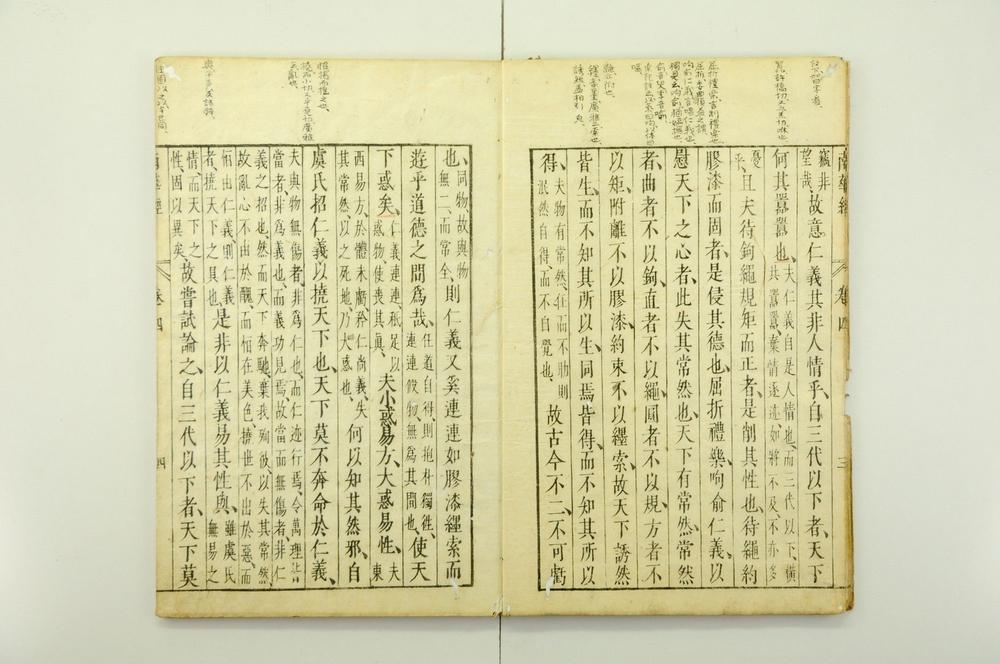 南華經 卷四 三
竊非
望哉
故意仁義其非人情乎、自三代以下者、天下
何其囂囂也、
夫仁義自是人情也、而三代以下、橫
共囂囂、棄情逐迹、如將不及、不亦多
憂
乎、
且夫待鉤繩規矩而正者、是削其性也、待繩約
膠漆而固者、是侵其德也、屈折禮樂、呴俞仁義、以
慰天下之心者、此失其常然也、天下有常然、常然
者、曲者不以鉤、直者不以繩、圓者不以規、方者不
以矩、附離不以膠漆、約束不以纆索、故天下誘然
皆生、而不知其所以生、同焉皆得、而不知其所以
得、
夫物有常然、任而不助、則
泯然自得、而不自覺也、
故古今不二、不可虧
也、
同物、故與物
無二、而常全、
則仁義又奚連連如膠漆纆索、而
遊乎道德之間爲哉、
任道自得、則抱朴獨往、
連連假物、無爲其間也、
使天
下惑矣、
仁義連連、秖足以
惑物、使喪其眞、
夫小惑易方、大惑易性、
夫
東
西易方、於體未虧、矜仁尚義、失
其常然、以之死地、乃大惑也、
何以知其然邪、自
虞氏招仁義、以撓天下也、天下莫不奔命於仁義、
夫與物無傷者、非爲仁也、而仁迹行焉、令萬理皆
當者、非爲義也、而義功見焉、故當而無傷者、非仁
義之招也、然而天下奔馳、棄我殉彼、以失其常然、
故亂心不由於醜、而恒在美色、撓世不出於惡、而
恒由仁義、則仁義
者、撓天下之具也、
是非以仁義易其性與、
雖虞氏
無易之
情、而天下之
性、固以異矣、
故嘗試論之、自三代以下者、天下莫
南華經 卷四 四